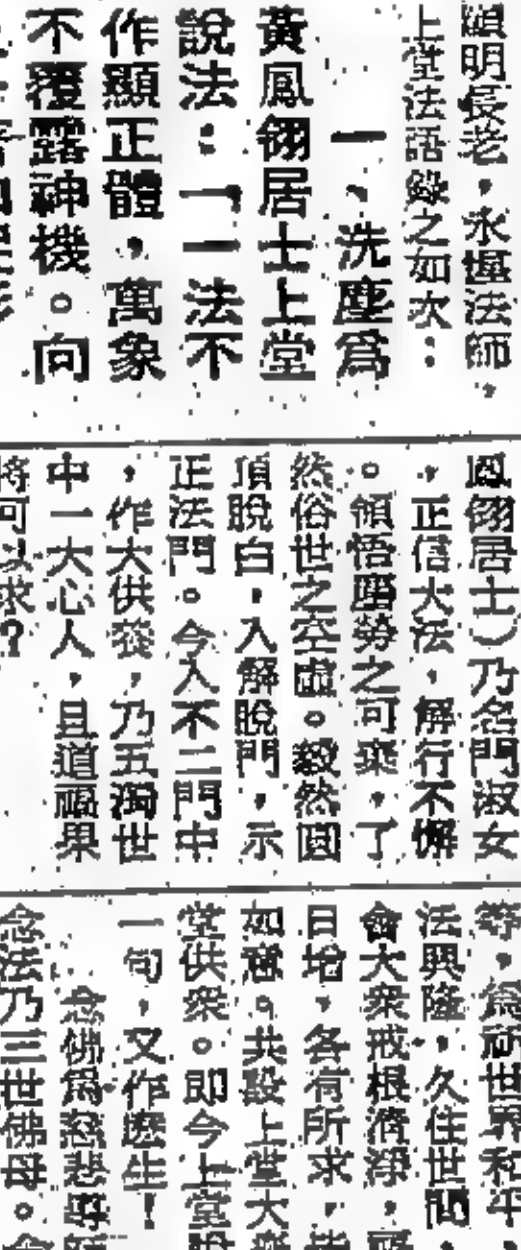 顯明長老，永惺法師，
上堂法語錄之如次：
一、洗塵爲
黃鳳翎居士上堂
說法：「一法不
作顯正體，萬象
不覆露神機。向
鳳翎居士）乃名門淑女
，正信大法，解行不懈
。領悟塵勞之可棄，了
然俗世之空虛。毅然圓
頂脫白，入解脫門，示
正法門。今入不二門中
，作大供養，乃五濁世
中一大心人，且道福果
將可以求？
等，爲祈世界和平，
法興隆，久住世間，
會大衆戒根清淨，
日增，各有所求，皆
如意。共設上堂大齋
堂供衆。即今上堂說
一句，又作麽生！
念佛爲慈悲導師
念法乃三世佛母。念